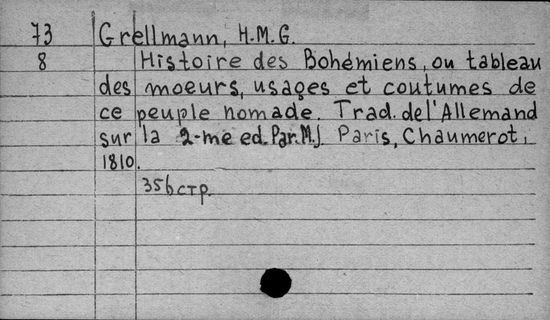 73 Grellmann, H.M.G.
8 Histoire des Bohémiens, ou tableau
des moeurs, usages et coutumes de
ce peuple nomade. Trad. de l'Allemand
sur la 2-me ed. Par. M.J. Paris, Chaumerot,
1810.
356 стр.